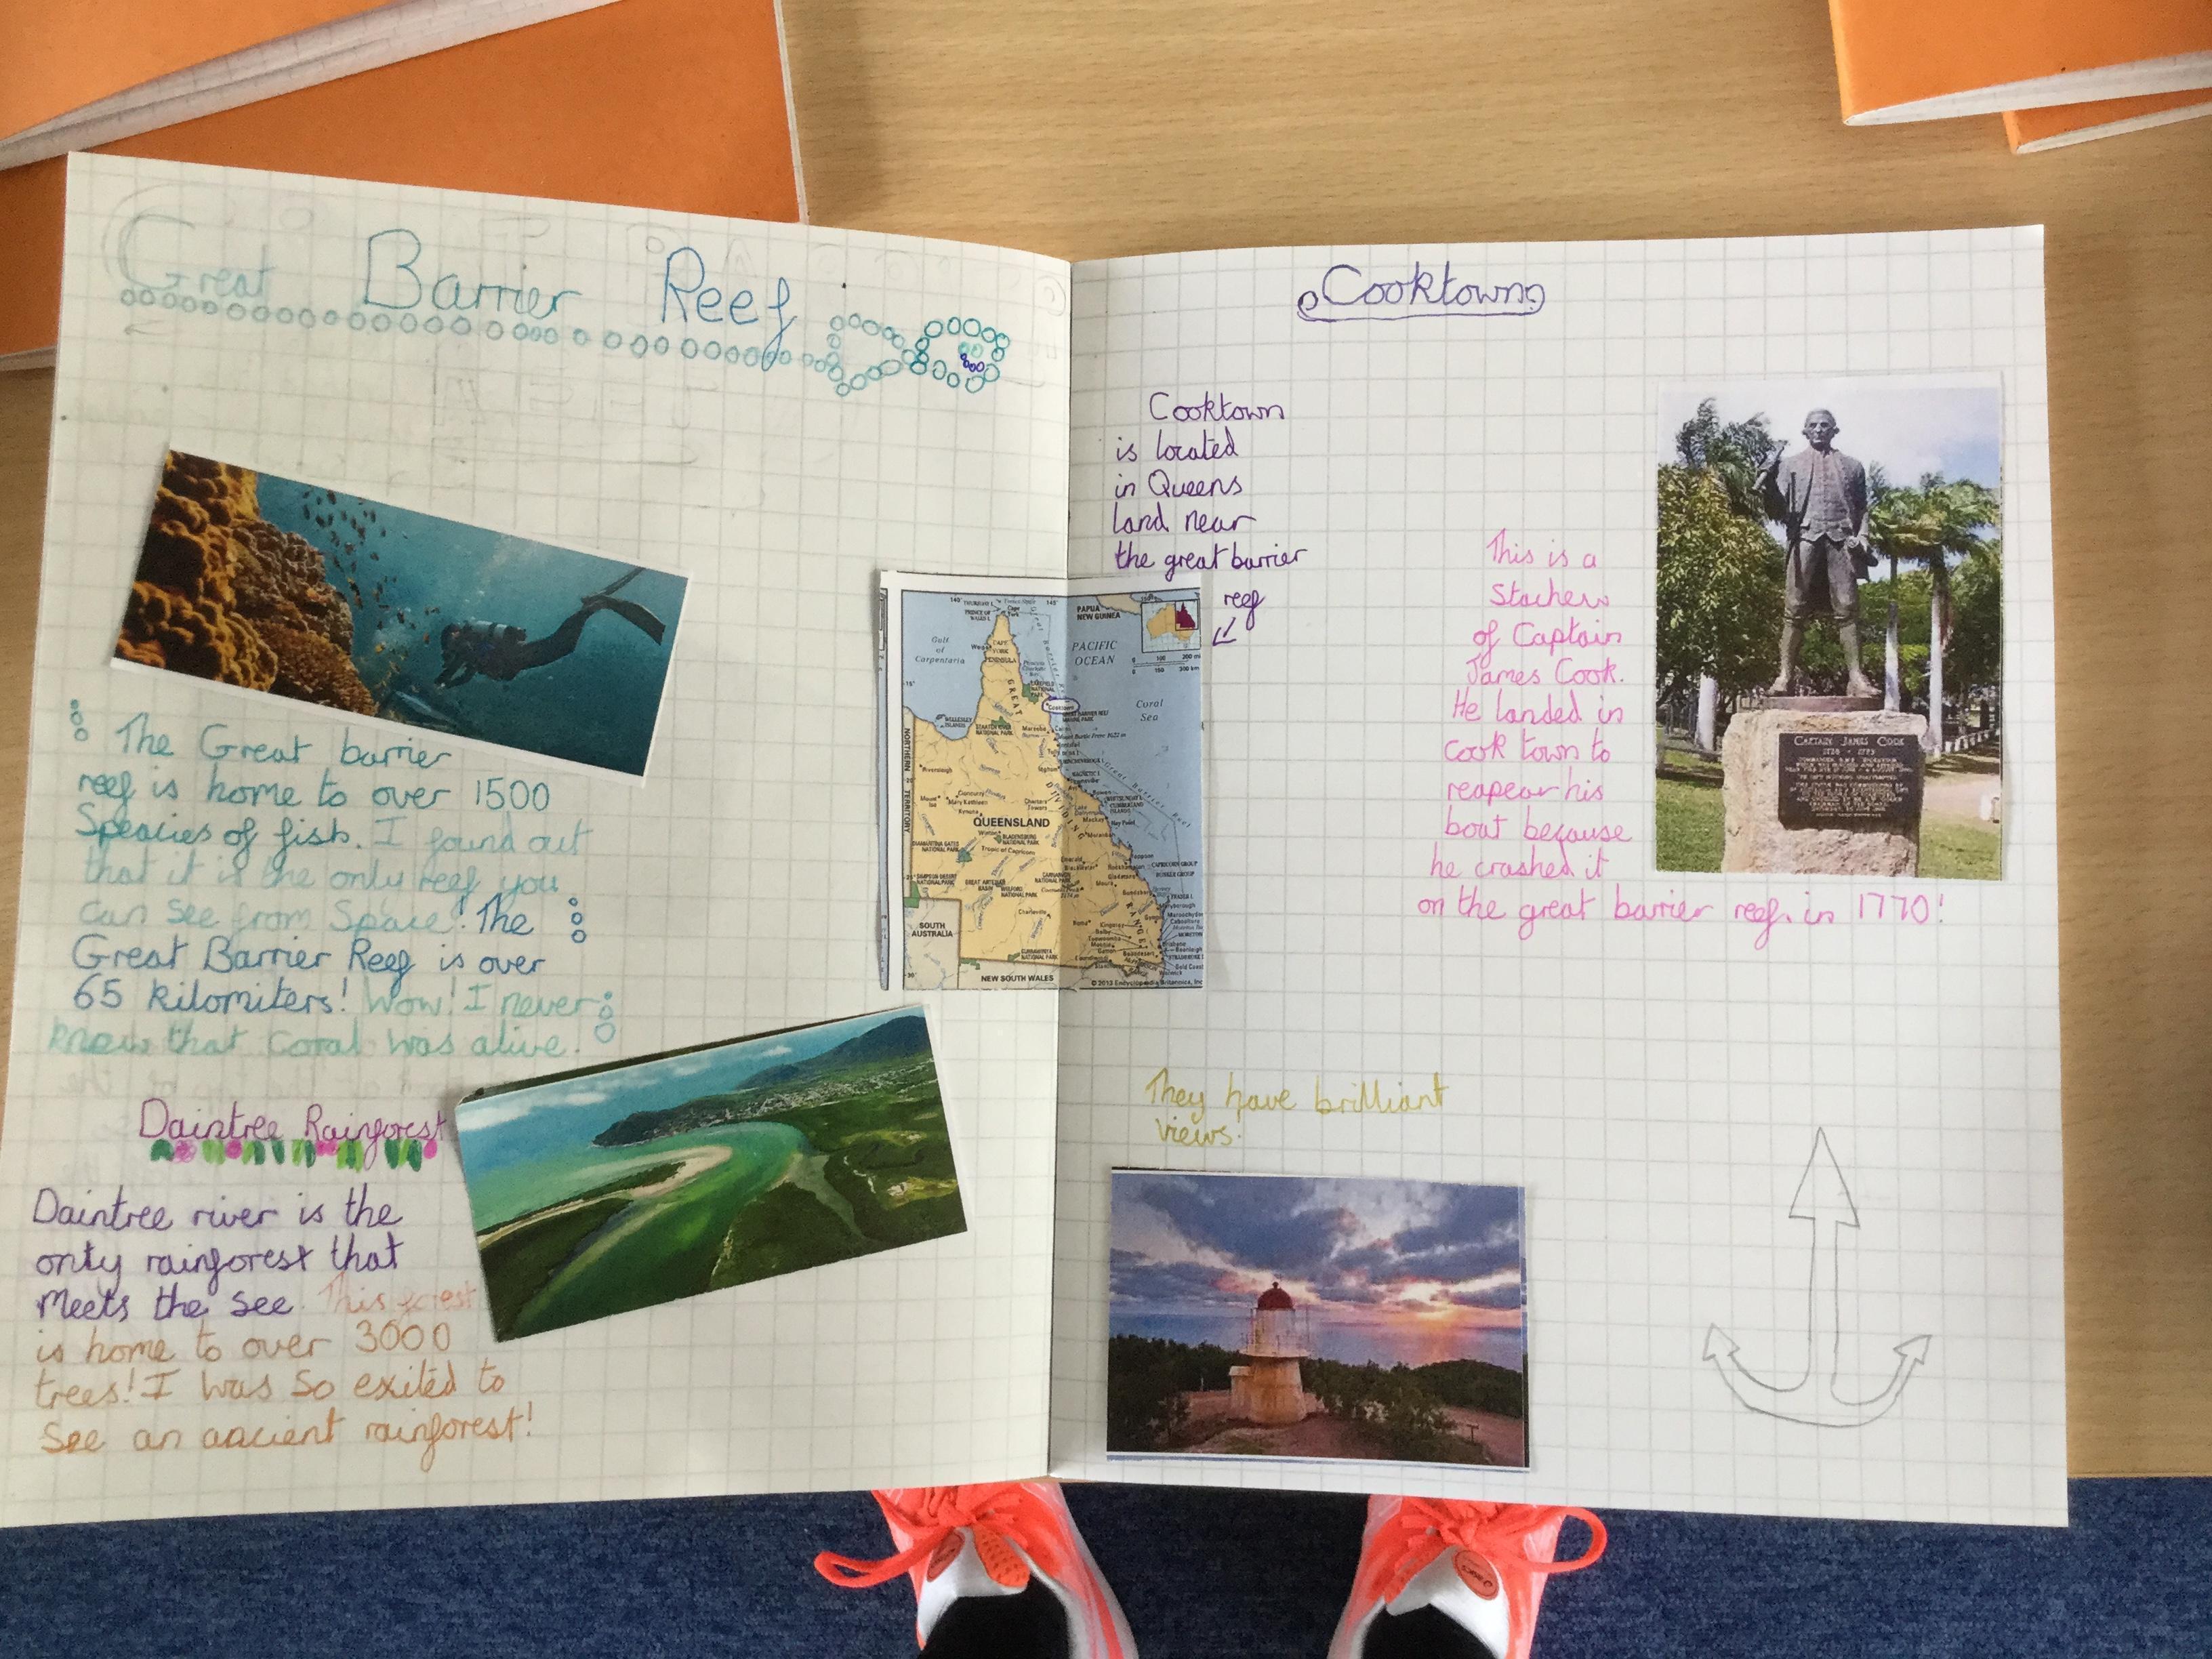 Great Barrier Reef
The Great barrier
reef is home to over 1500
Speacies of fish. I found out
that it is the only reef you
can see from Space! The
Great Barrier Reef is over
65 kilomiters! Wow! I never
knew that coral was alive.
Daintree Rainforest
Daintree river is the
only rainforest that
meets the see. This forest
is home to over 3000
trees! I was so exited to
see an ancient rainforest!
Cooktown
Cooktown
is located
in Queens
land near
the great barrier
reef
Gulf
of
Carpentaria
PAPUA
NEW GUINEA
PACIFIC
OCEAN
Coral
Sea
Cooktown
GREAT
DIVIDING
RANGE
Great Barrier Reef
NORTHERN
TERRITORY
QUEENSLAND
SOUTH
AUSTRALIA
NEW SOUTH WALES
© 2013 Encyclopædia Britannica, Inc
This is a
Stachew
of Captain
James Cook.
He landed in
cook town to
reapear his
boat because
he crashed it
on the great barrier reef. in 1770!
CAPTAIN JAMES COOK
They have brilliant
views.